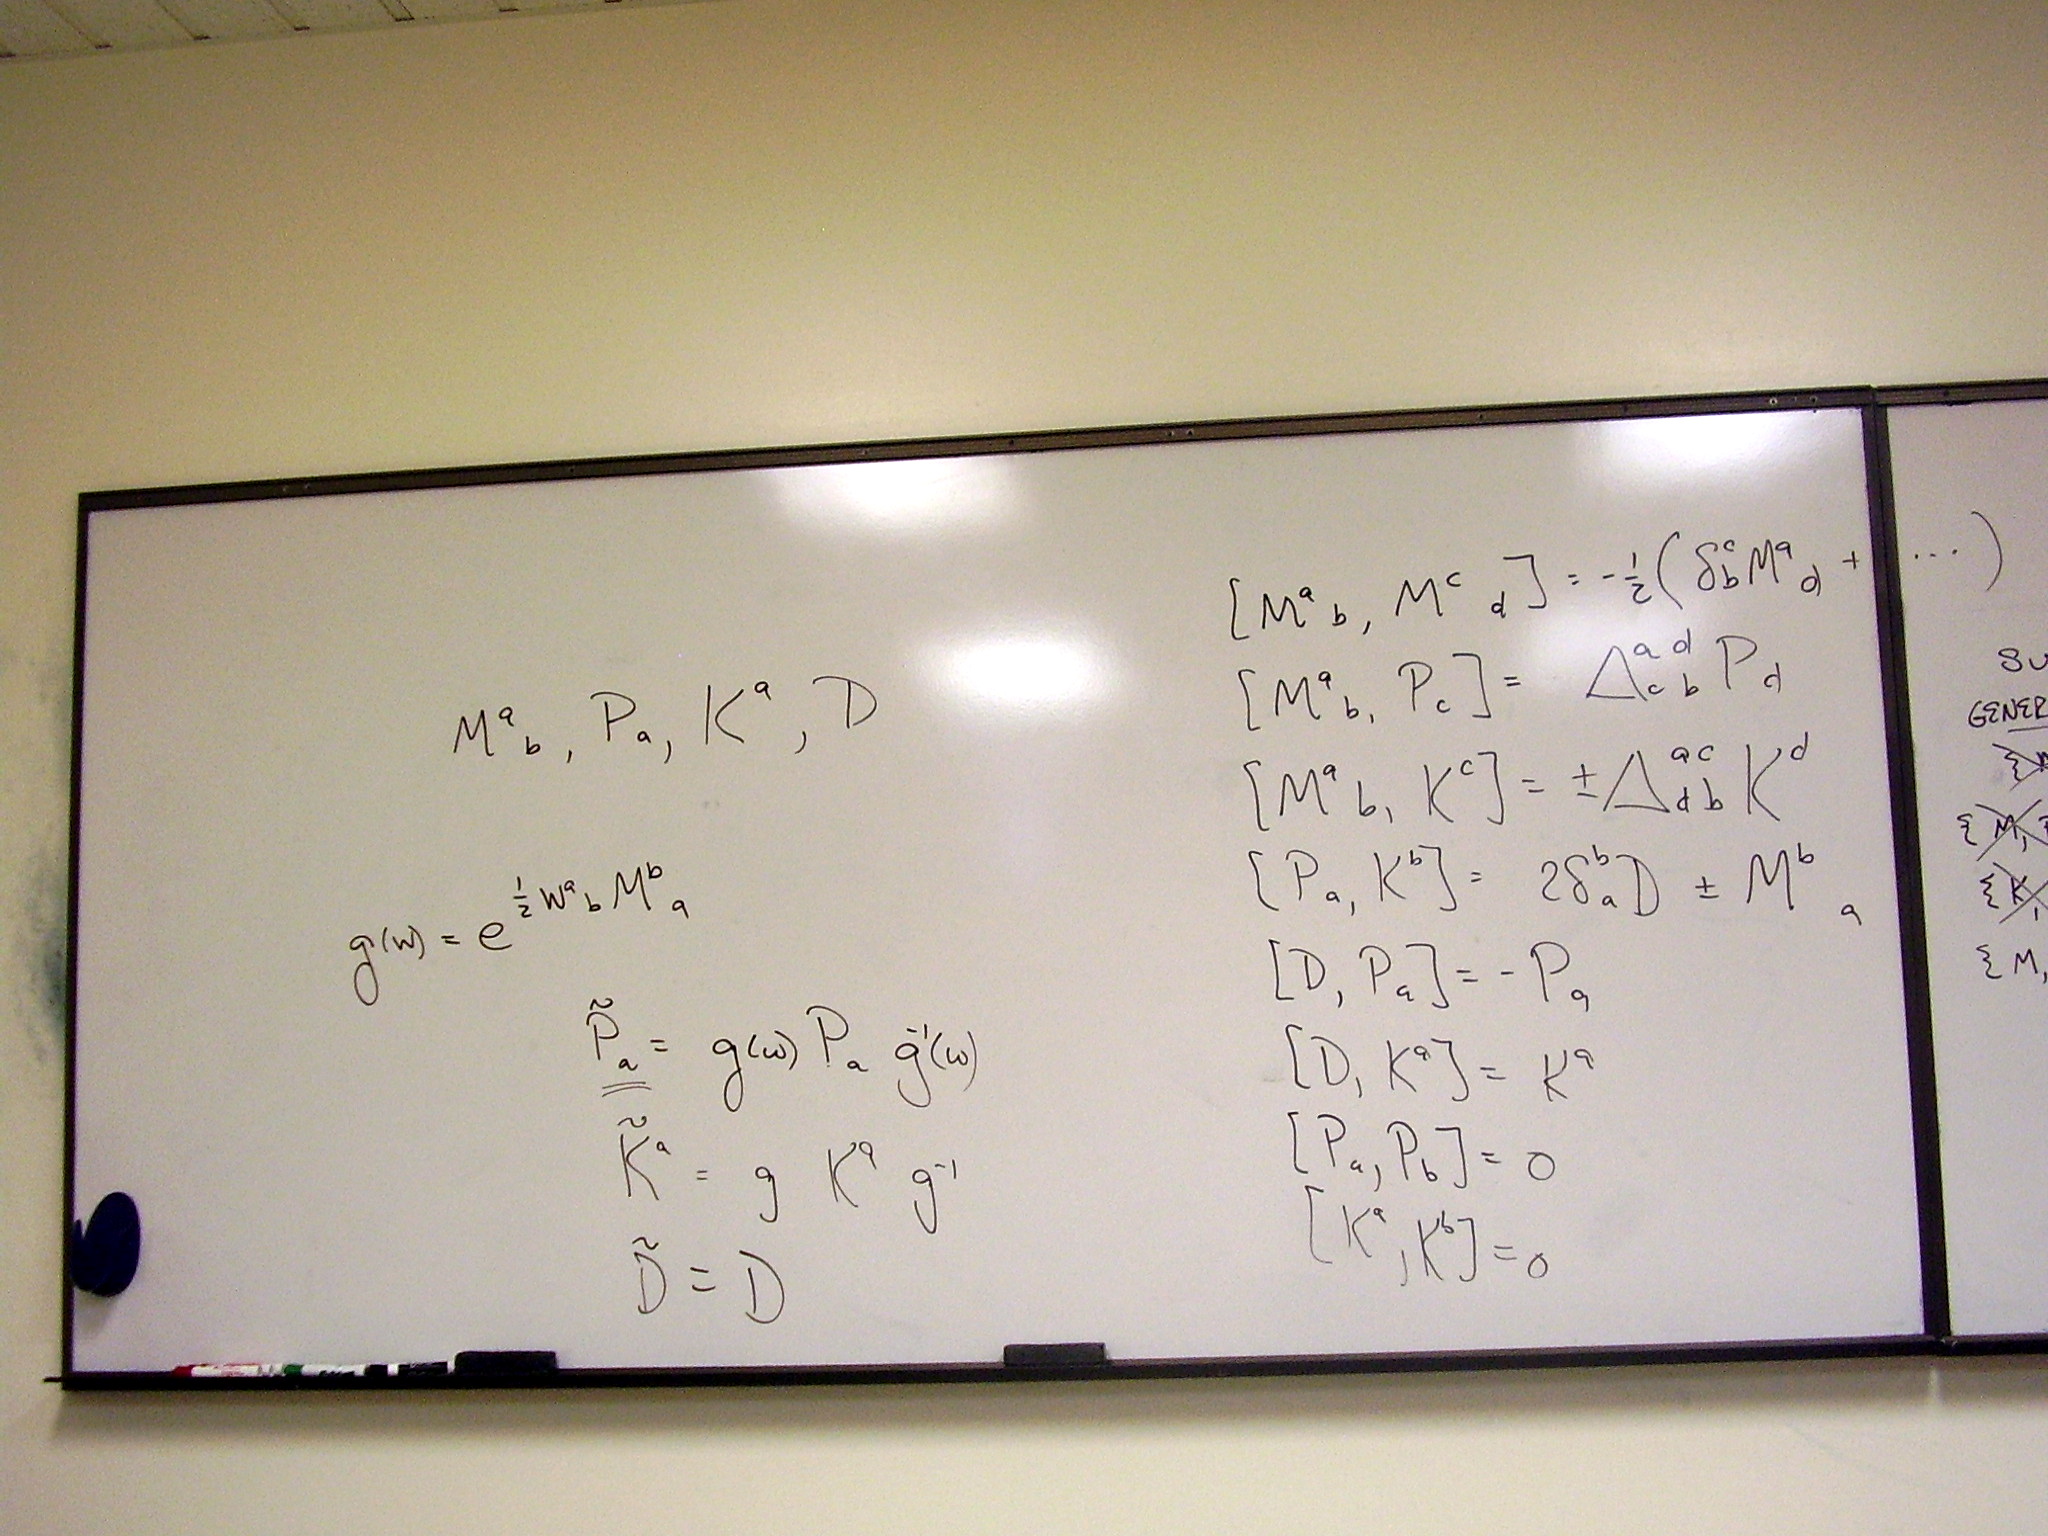 Mᵃ_b, P_a, Kᵃ, D
g(w) = e^{½ wᵃ_b Mᵇ_a}
P̃_a = g(w) P_a g⁻¹(w)
K̃ᵃ = g Kᵃ g⁻¹
D̃ = D
[Mᵃ_b, Mᶜ_d] = -½(δᶜ_b Mᵃ_d + ...)
[Mᵃ_b, P_c] = Δ^{a d}_{c b} P_d
[Mᵃ_b, Kᶜ] = ±Δ^{a c}_{d b} K^d
[P_a, Kᵇ] = 2δᵇ_a D ± Mᵇ_a
[D, P_a] = -P_a
[D, Kᵃ] = Kᵃ
[P_a, P_b] = 0
[Kᵃ, Kᵇ] = 0
SU
GENER
{M,
{K,
{M,